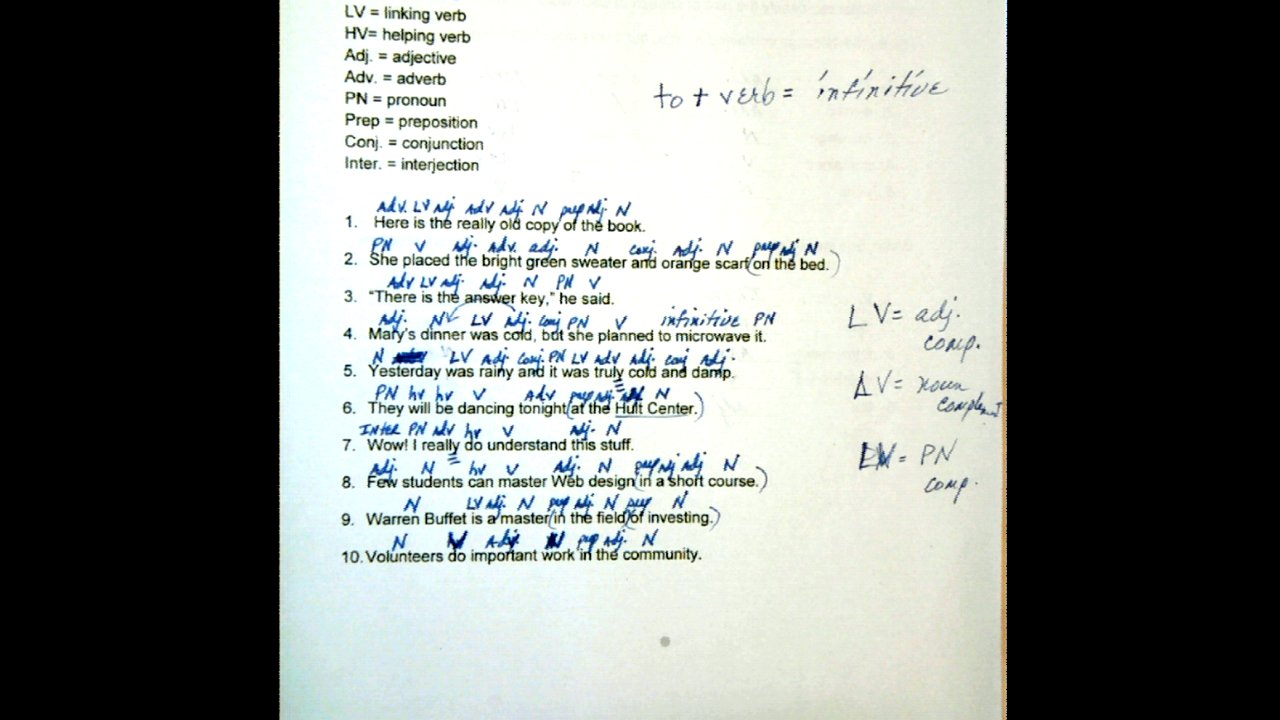 LV = linking verb
HV= helping verb
Adj. = adjective
Adv. = adverb
to + verb = infinitive
PN = pronoun
Prep = preposition
Conj. = conjunction
Inter. = interjection
Adv. LV Adj. Adv Adj. N prep Adj. N
1. Here is the really old copy of the book.
PN V Adj. Adv. adj. N conj. Adj. N prep Adj N
2. She placed the bright green sweater and orange scarf (on the bed.)
Adv LV Adj. Adj. N PN V
3. "There is the answer key," he said.
Adj. N LV Adj. conj PN V infinitive PN
4. Mary's dinner was cold, but she planned to microwave it.
LV= adj. comp.
N LV Adj. conj. PN LV Adv Adj. conj Adj.
5. Yesterday was rainy and it was truly cold and damp.
LV= noun complement
PN hv hv V Adv prep adj. N
6. They will be dancing tonight (at the Hult Center.)
INter PN Adv hv V Adj. N
7. Wow! I really do understand this stuff.
LV= PN comp.
Adj. N hv V Adj. N prep Adj Adj N
8. Few students can master Web design (in a short course.)
N LV Adj. N prep Adj. N prep N
9. Warren Buffet is a master (in the field) (of investing.)
N V Adj. N prep Adj. N
10. Volunteers do important work in the community.